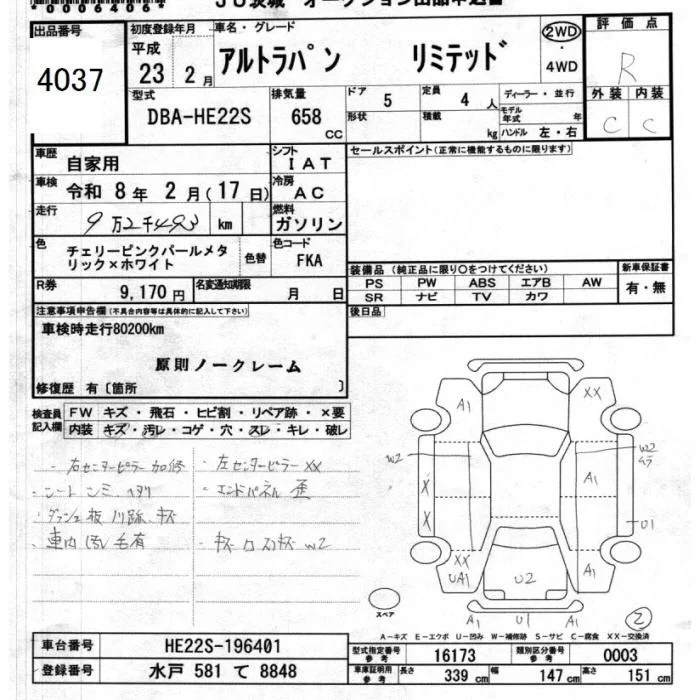 *0006406*
JU茨城 オークション出品申込書
出品番号
4037
初度登録年月
平成
23 2月
車名・グレード
アルトラパン リミテッド
2WD
・
4WD
評価点
R
外装 内装
C C
型式
DBA-HE22S
排気量
658
CC
ドア
5
定員
4 人
ディーラー・並行
モデル年式 年
形状
積載 kg
ハンドル 左・右
車歴
自家用
シフト
IAT
セールスポイント(正常に機能するものに限ります)
車検
令和 8年 2月(17日)
冷房
AC
走行
9万2千493 km
燃料
ガソリン
色
チェリーピンクパールメタ
リック×ホワイト
色替
色コード
FKA
装備品(純正品に限り○をつけてください)
新車保証書
PS PW ABS エアB AW
有・無
SR ナビ TV カワ
R券
9,170円
名変通知期限
月 日
後日品
注意事項申告欄(不具合内容等は具体的に記入して下さい)
車検時走行80200km
原則ノークレーム
修復歴 有〔箇所 〕
検査員
記入欄
FW キズ・飛石・ヒビ割・リペア跡・×要
内装 キズ・汚レ・コゲ・穴・スレ・キレ・破レ
・右センターピラー加修
・左センターピラーXX
・シート シミ ヘタリ
・エンドパネル 歪
・ダッシュ板 ハリ跡、キズ
・車内 汚レ 毛有
・キズ 凹 スリキズ W2
A1
XX
W2
W2
ムラ
X
A1
X
U1
XX
UA1
U2
A1
スペア
A1 U1 A1
2
A-キズ E-エクボ U-凹み W-補修跡 S-サビ C-腐食 XX-交換済
車台番号
HE22S-196401
型式指定番号
参考
16173
類別区分番号
参考
0003
登録番号
水戸 581 て 8848
車庫証明用
参考
長さ
339 cm
幅
147 cm
高さ
151 cm